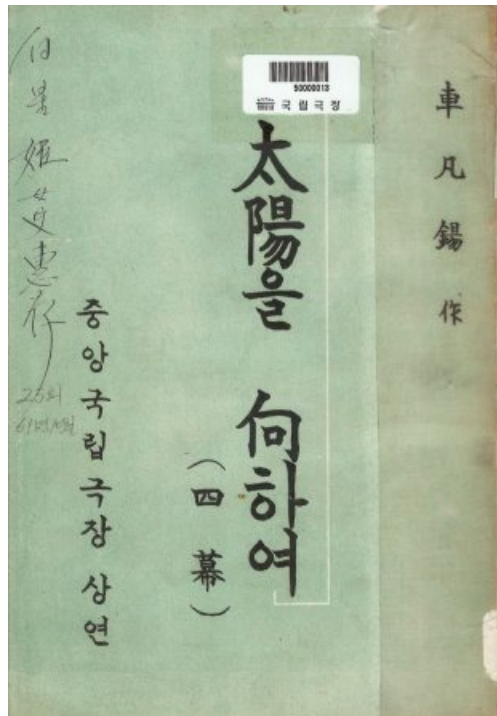 50000013
국립극장
車凡錫 作
太陽을 向하여
(四幕)
중앙국립극장 상연
25회